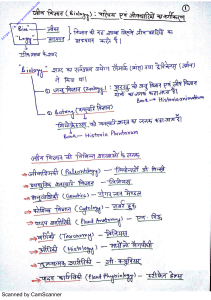 जीव विज्ञान (Biology) : परिचय एवं जीवधारियों का वर्गीकरण
①
"Bios" जीवन
"Logy" अध्ययन
विज्ञान की वह शाखा जिसमें जीवधारियों का
अध्ययन करते हैं।
"Biology" शब्द का सर्वप्रथम प्रयोग लैमार्क (फ्रांस) तथा ट्रेविरेनस (जर्मन)
ने किया था।
① जन्तु विज्ञान (Zoology) : अरस्तू को जन्तु विज्ञान एवं जीव विज्ञान
Book → Historia animalium
② Botany (वनस्पति विज्ञान)
थियोफ्रेस्टस को वनस्पति शास्त्र का जनक कहा जाता है।
Book → Historia Plantarum
जीव विज्ञान की विभिन्न शाखाओं के जनक
जीवाश्मिकी (Paleontology) - लियोनार्डो दी विन्ची
आधुनिक वनस्पति विज्ञान - लिनियस
आनुवंशिकी (Genetics) - ग्रेगर जॉन मेण्डल
कोशिका विज्ञान (Cytology) - रॉबर्ट हुक
पादप शारीरिकी (Plant Anatomy) - एन. ग्रिऊ
वर्गिकी (Taxonomy) - लिनियस
औतिकी (Histology) - मार्सेलो मैल्पीजी
पादप कार्यिकी (Plant Physiology) - स्टीफन हेल्स
Scanned by CamScanner